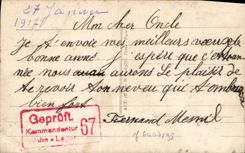 27 Janvier
1917
Mon cher Oncle
Je t'envoie mes meilleurs voeux de
bonne année j'espère que cette
née nous aurons Le plaisir de
te revoir Ton neveu qui t'embrasse
bien fort
Fernand Mesnil
Geprüft
Kommandantur
67